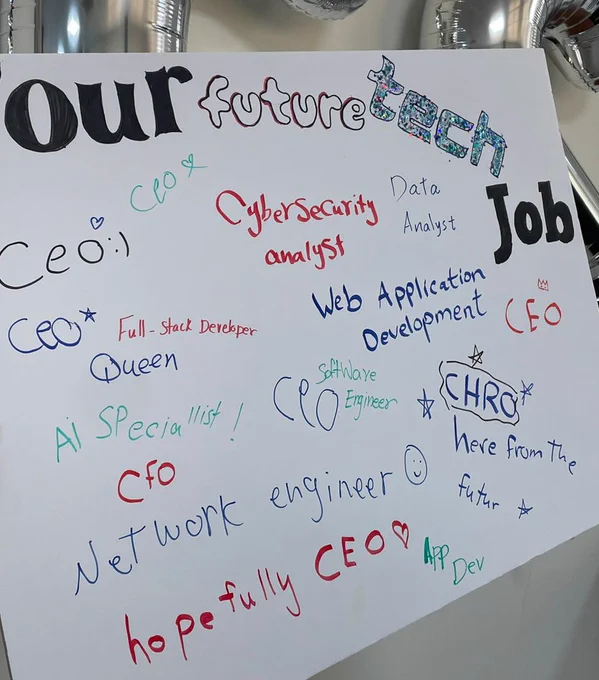 our future tech
Job
CEO
Ceo :)
Cybersecurity
analyst
Data
Analyst
Web Application
Development
CEO
Ceo
Full-Stack Developer
Queen
CEO
Software
Engineer
CHRO
here from the
futur
Ai SPeciallist !
CFO
Network engineer
hopefully CEO
APP
Dev